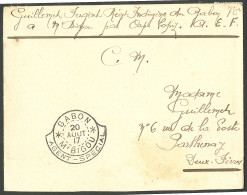 Guillemet Sergent Régt Indigènes du Gabon
a Mbigou par Cap Lopez A. E. F.
C. M.
GABON
20
AOUT
17
Mt BIGOU
AGENT-SPECIAL
Madame
Guillemet
n° 6 rue de la Poste
Parthenay
Deux-Sèvres